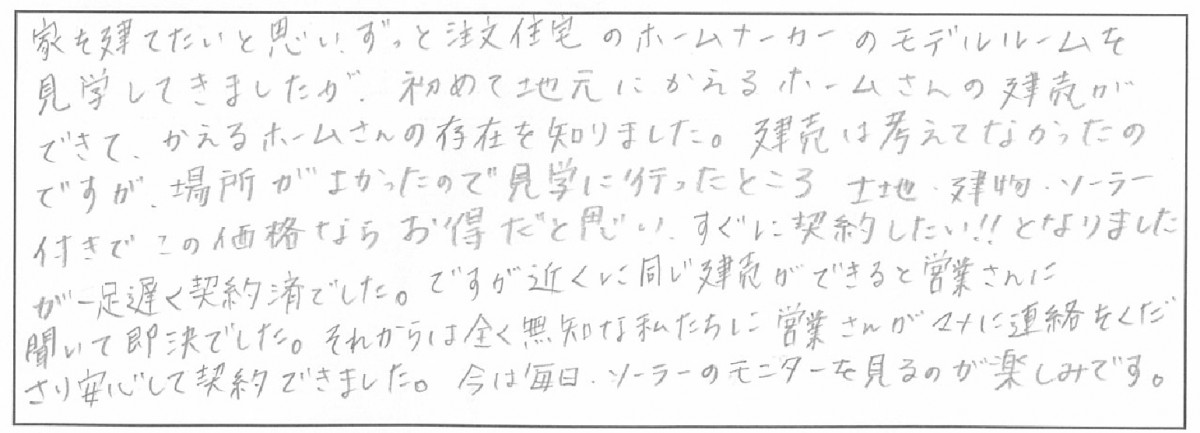 家を建てたいと思い、ずっと注文住宅のホームメーカーのモデルルームを
見学してきましたが、初めて地元にかえるホームさんの建売が
できて、かえるホームさんの存在を知りました。建売は考えてなかったの
ですが、場所がよかったので見学に行ったところ 土地・建物・ソーラー
付きでこの価格ならお得だと思い、すぐに契約したい!!となりました
が一足遅く契約済でした。ですが近くに同じ建売ができると営業さんに
聞いて即決でした。それからは全く無知な私たちに営業さんがマメに連絡をくだ
さり安心して契約できました。今は毎日、ソーラーのモニターを見るのが楽しみです。